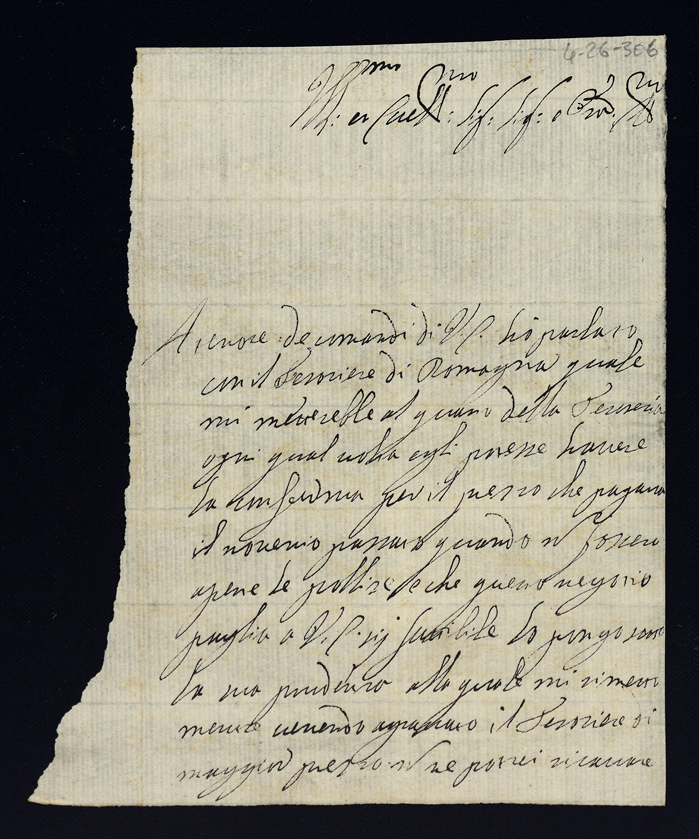 4-26-306
Ill:mo et Ecc:mo Sig: Sig: e Pron: Col:mo
A tenore de comandi di V. S. hò parlato
con il Tesoriere di Romagna quale
mi metterebbe al quarto della Tesoreria
ogni qual volta egli potesse havere
la conferma per il prezzo che pagava
il novenio passato quando n fossero
aperte le pollize e che questo negozio
paglia a V. S. sij fattibile lo pongo sotto
la sua prudenza alla quale mi rimetto
mentre venendo agravato il Tesoriere di
maggior prezzo n ne potrei ricavare